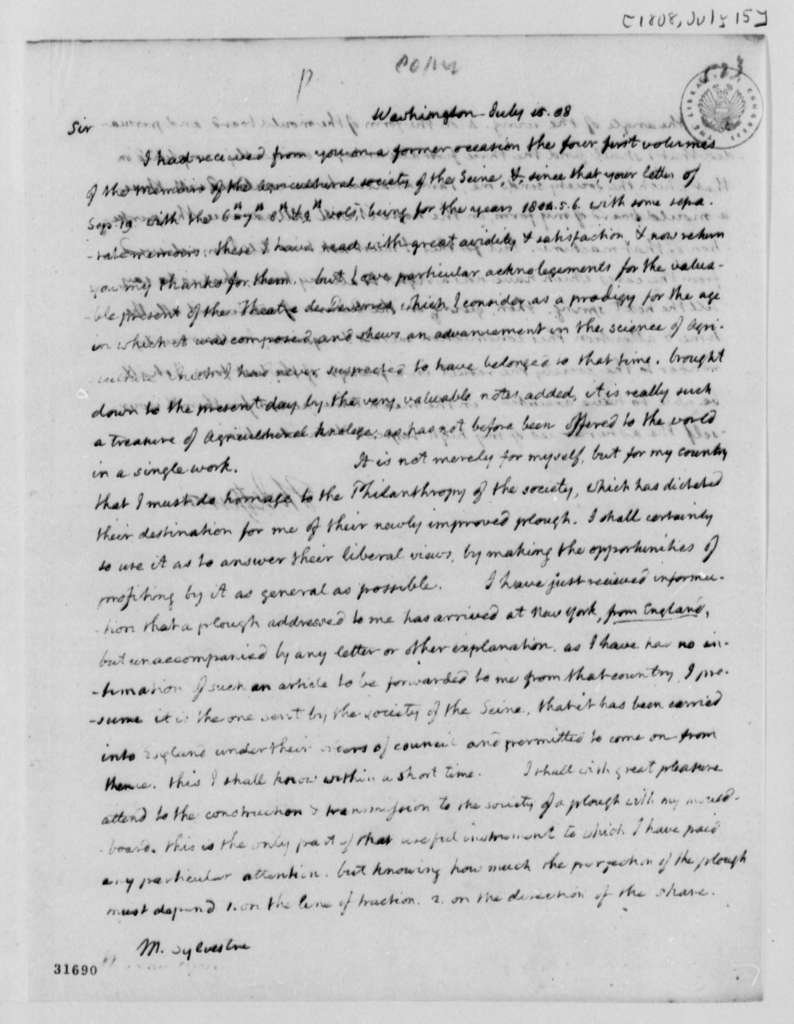 [1808, July 15]
copy
Washington July 15. 08
Sir
I had received from you on a former occasion the four first volumes
of the Memoirs of the Agricultural society of the Seine, & since that your letter of
Sep. 19 with the 6th 7th 8th & 9th vols, being for the years 1804. 5. 6 with some sepa-
-rate memoirs. these I have read with great avidity & satisfaction, & now return
you my thanks for them. but I owe particular acknolegements for the valua-
-ble present of the Theatre de which I consider as a prodigy for the age
in which it was composed and shews an advancement in the science of Agri-
-culture which I had never suspected to have belonged to that time. brought
down to the present day by the very valuable notes added, it is really such
a treasure of Agricultural knolege, as has not before been offered to the world
in a single work. It is not merely for myself, but for my country
that I must do homage to the Philanthropy of the society, which has dictated
their destination for me of their newly improved plough. I shall certainly
so use it as to answer their liberal views, by making the opportunities of
profiting by it as general as possible. I have just recieved informa-
-tion that a plough addressed to me has arrived at New York, from England,
but unaccompanied by any letter or other explanation. as I have had no in-
-timation of such an article to be forwarded to me from that country, I pre-
-sume it is the one sent by the society of the Seine, that it has been carried
into England under their orders of council and permitted to come on from
thence. this I shall know within a short time. I shall with great pleasure
attend to the construction & transmission to the society of a plough with my mould-
-board. this is the only part of that useful instrument to which I have paid
any particular attention. but knowing how much the perfection of the plough
must depend 1. on the line of traction. 2. on the direction of the share.
M. Sylvestre
31690